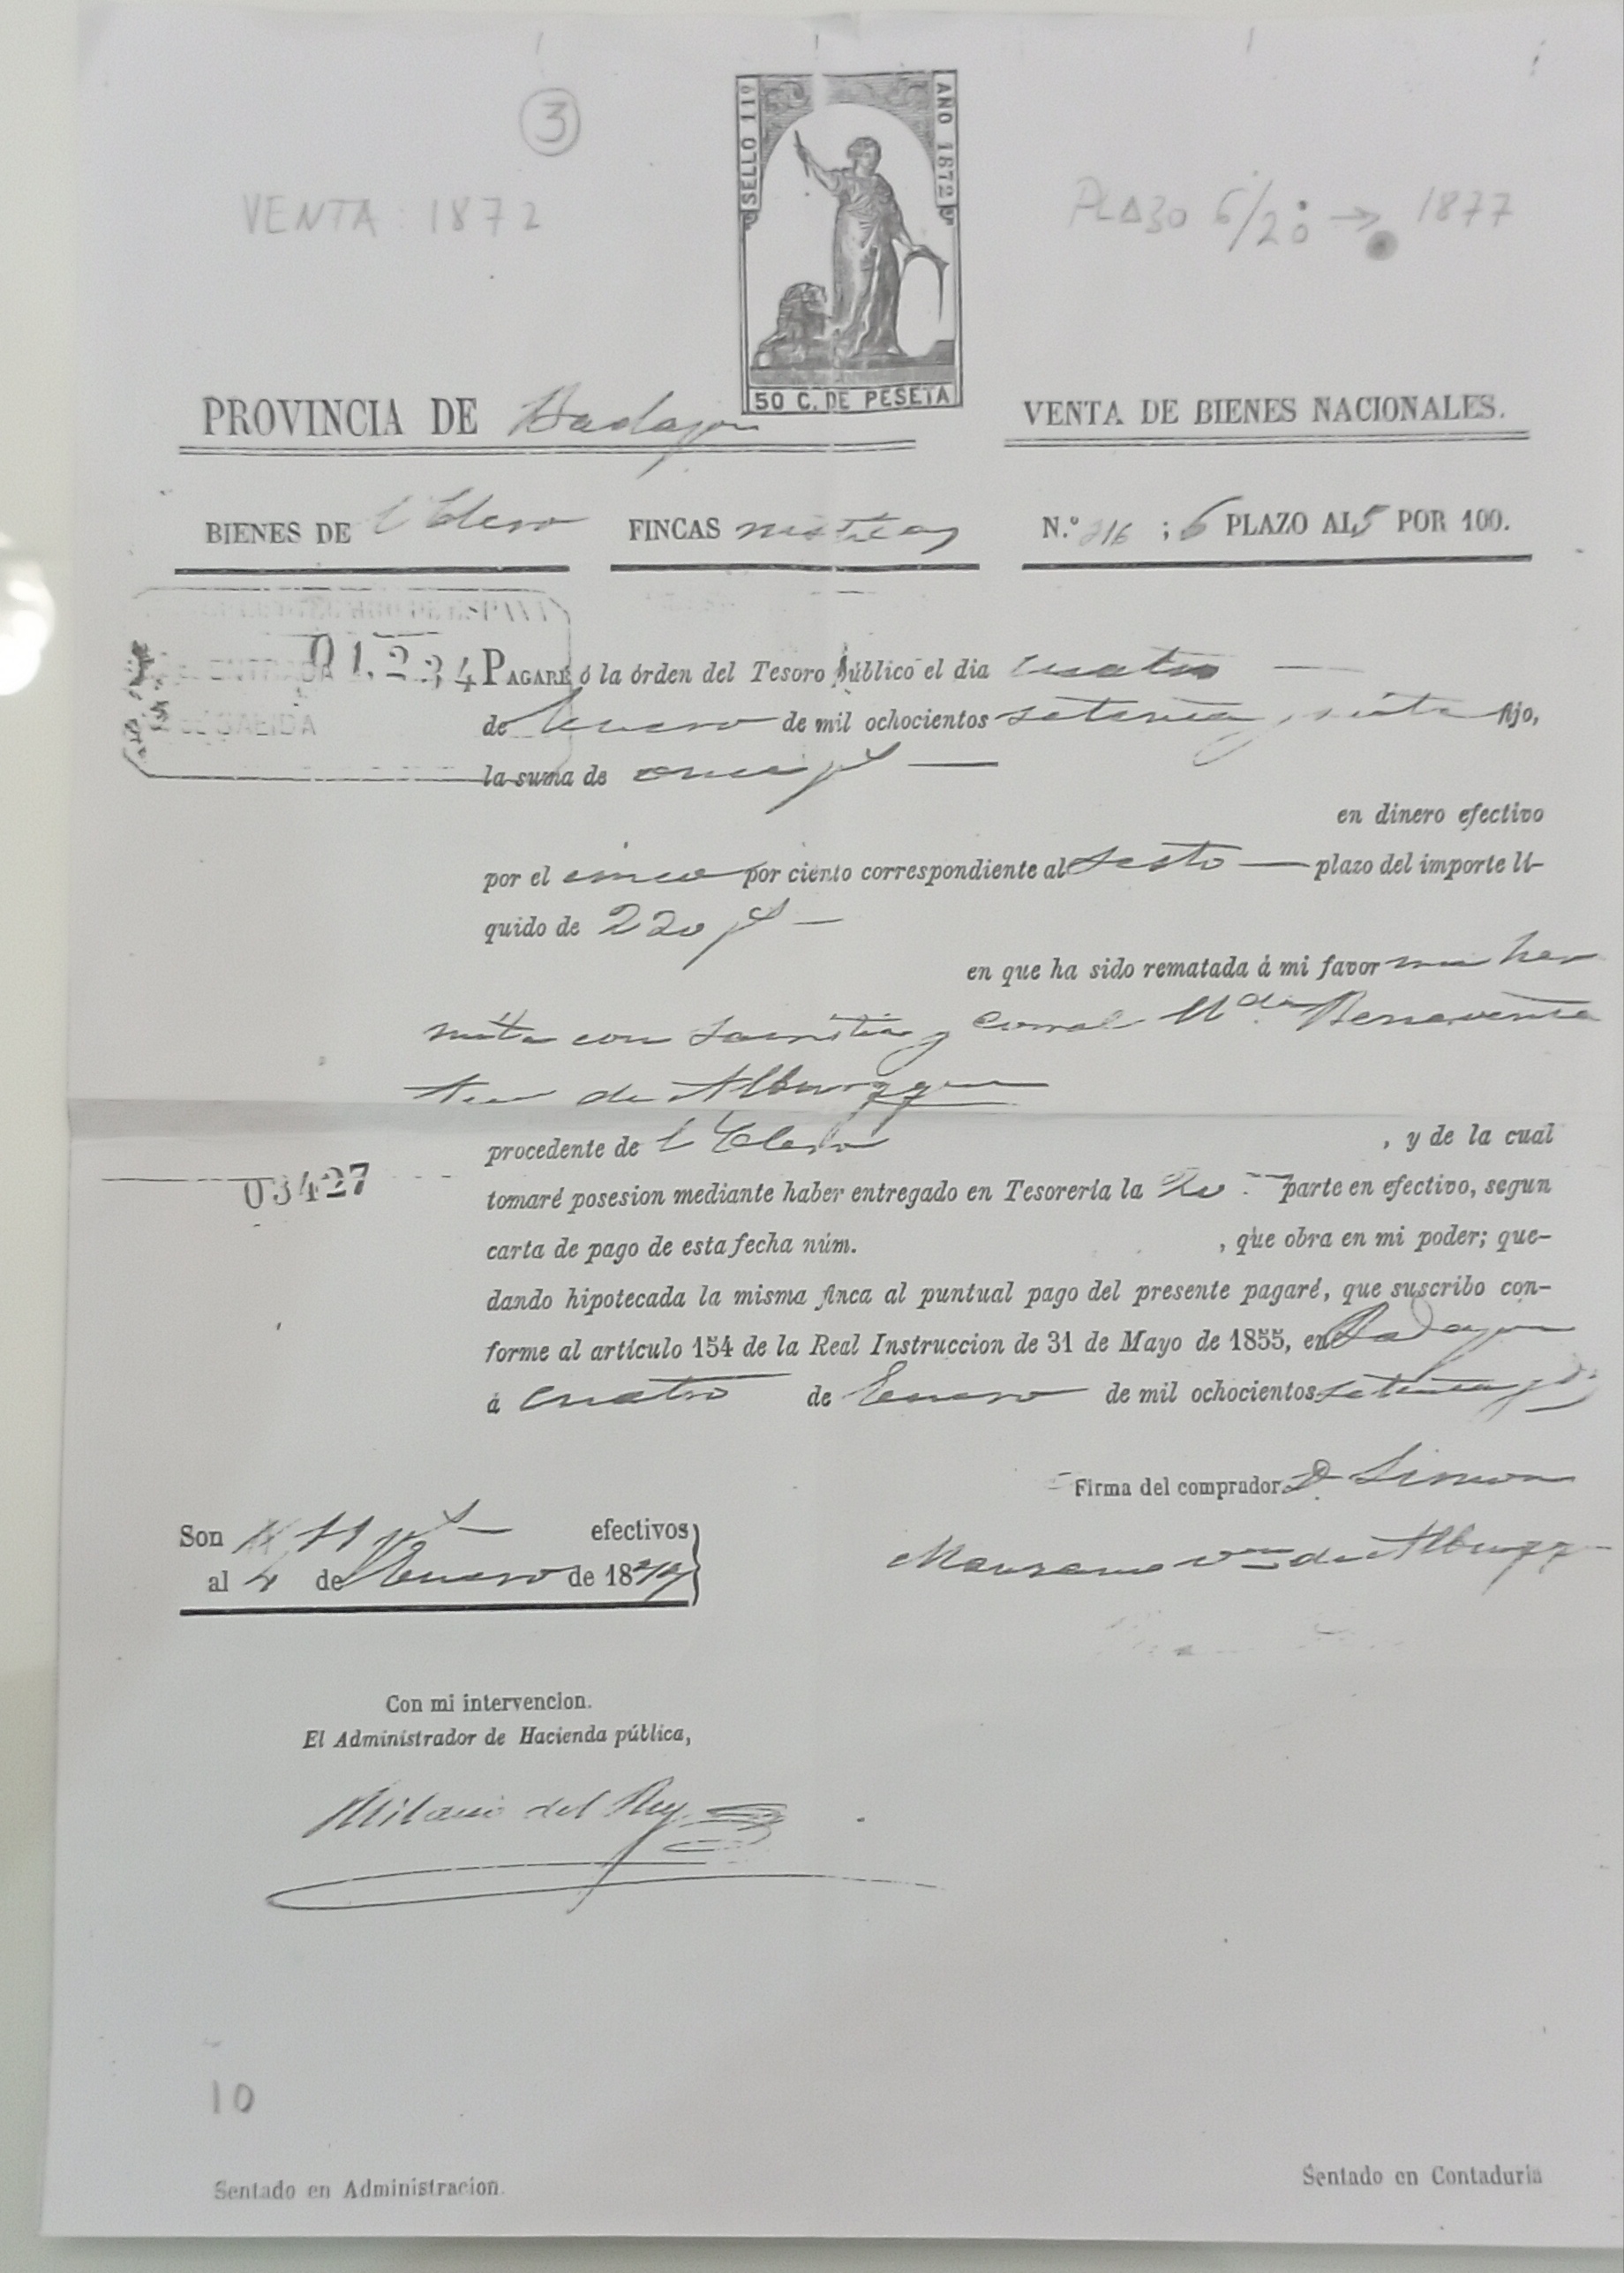 3
SELLO 11º
AÑO 1872
50 C. DE PESETA
VENTA: 1872
PLAZO 6/20 → 1877
PROVINCIA DE Badajoz
VENTA DE BIENES NACIONALES.
BIENES DE l Clero FINCAS rusticas N.º 216 ; 6 PLAZO AL 5 POR 100.
ENTRADA
SALIDA
01.234
PAGARÉ ó la órden del Tesoro público el dia cuatro
de Enero de mil ochocientos setenta y siete fijo,
la suma de once pts
en dinero efectivo
por el cinco por ciento correspondiente al sesto plazo del importe lí-
quido de 220 pts
en que ha sido rematada á mi favor una her
mita con Sacristia y corral Benavente
de Alburqq
procedente de l Clero , y de la cual
03427
tomaré posesion mediante haber entregado en Tesorería la 20 parte en efectivo, segun
carta de pago de esta fecha núm. , que obra en mi poder; que-
dando hipotecada la misma finca al puntual pago del presente pagaré, que suscribo con-
forme al artículo 154 de la Real Instruccion de 31 de Mayo de 1855, en Badajoz
á cuatro de Enero de mil ochocientos setenta y dos
Firma del comprador D. Simon
Manzano de Alburqq
Son 11 pts efectivos
al 4 de Enero de 1877
Con mi intervencion.
El Administrador de Hacienda pública,
del Rey
10
Sentado en Administracion.
Sentado en Contaduría